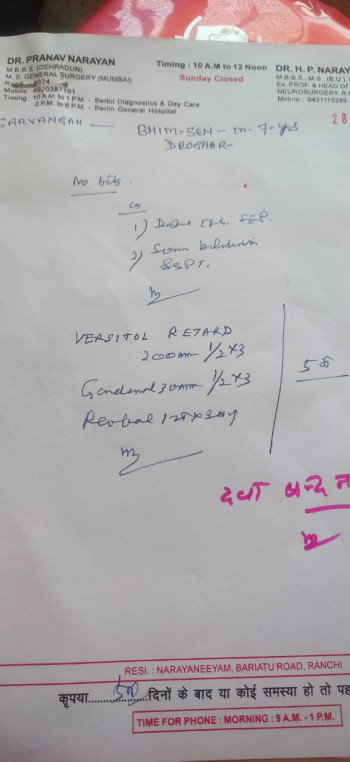 DR. PRANAV NARAYAN
M.B.B.S. (DEHRADUN)
M. S. GENERAL SURGERY (MUMBAI)
Mobile : 8920387191
Timing : 10 A.M. to 1 P.M. - Berlin Diagnostics & Day Care
2 P.M. to 8 P.M. - Berlin General Hospital
Timing : 10 A.M to 12 Noon
Sunday Closed
DR. H. P. NARAY
M.B.B.S., M.S. (B.U.)
Ex. PROF. & HEAD OF
NEUROSURGERY, R
Mobile : 9431115289
28
SARVANGAH -
BHIM-SEN - m - 7 - yrs
DEOGHAR -
No bits.
1)
2) Serum
SGPT.
VERSITOL RETARD
200mm 1/2 x 3
Gardenal 30mm 1/2 x 3
5
दवा बन्द न
RESI. : NARAYANEEYAM, BARIATU ROAD, RANCHI
कृपया..................दिनों के बाद या कोई समस्या हो तो पह
TIME FOR PHONE : MORNING : 9 A.M. - 1 P.M.